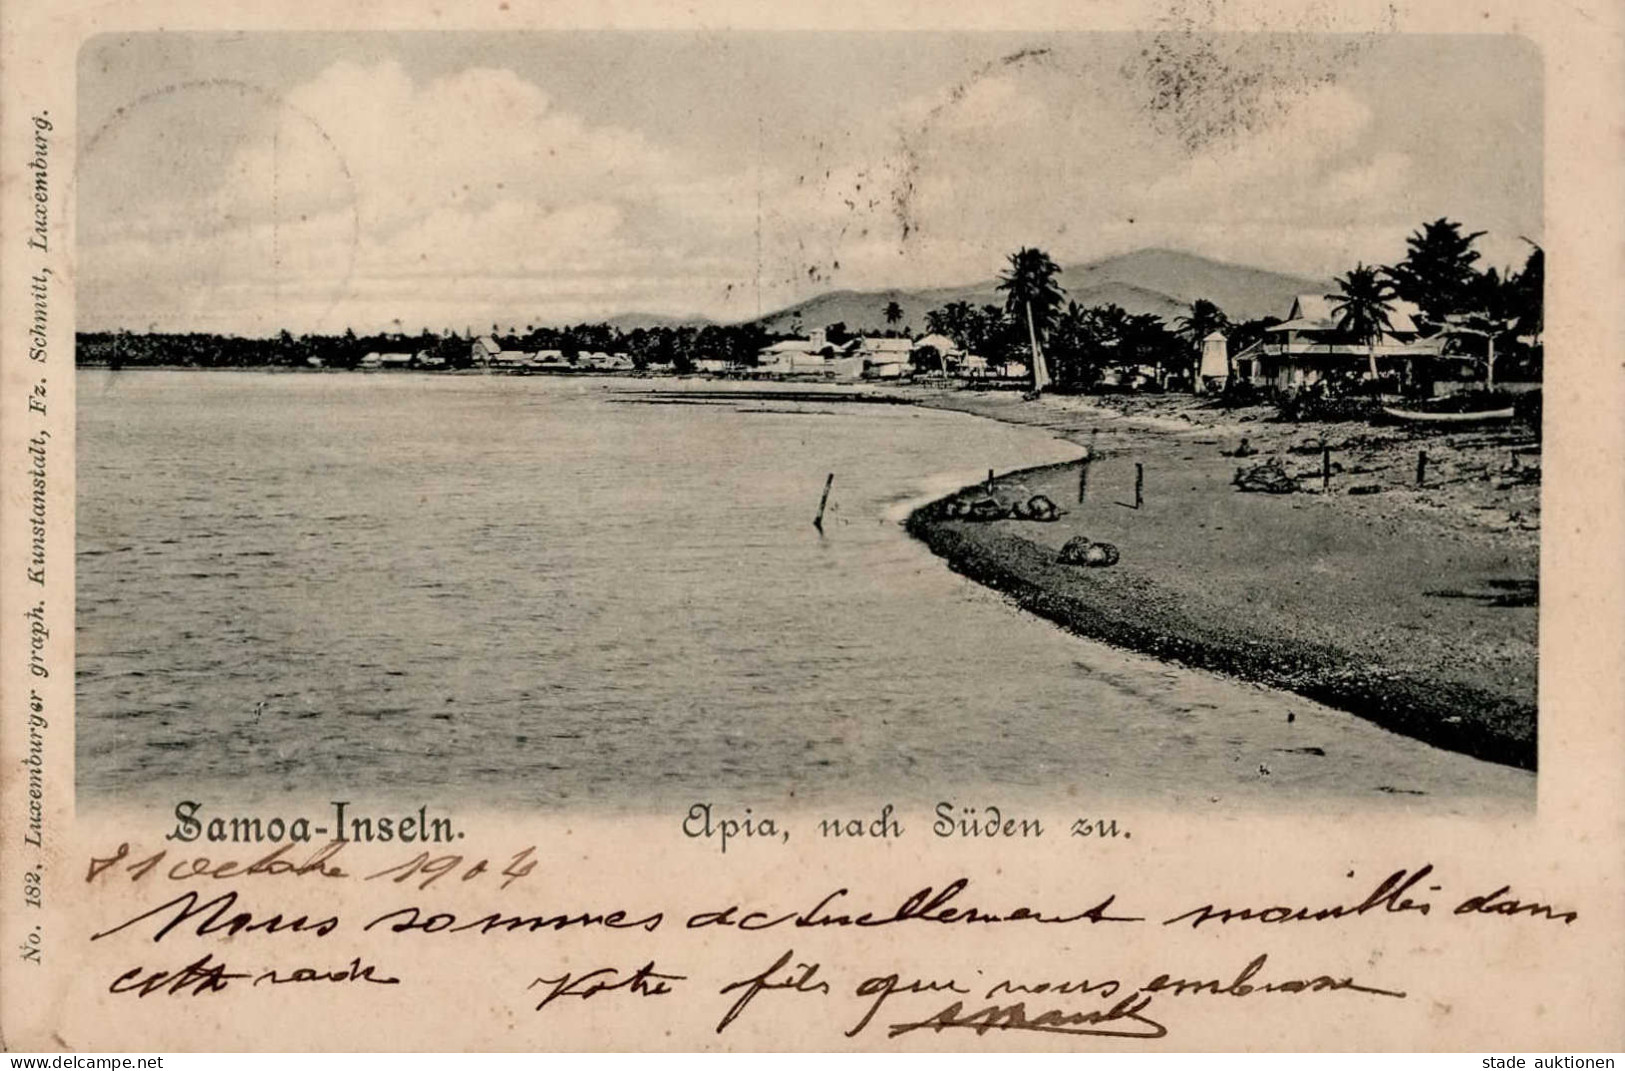 No. 182. Luxemburger graph. Kunstanstalt, Fz. Schmitt, Luxemburg.
Samoa-Inseln. Apia, nach Süden zu.
21 octobre 1904
Nous sommes actuellement mouillés dans
cette rade Votre fils qui vous embrasse
delcampe.net
stade auktionen